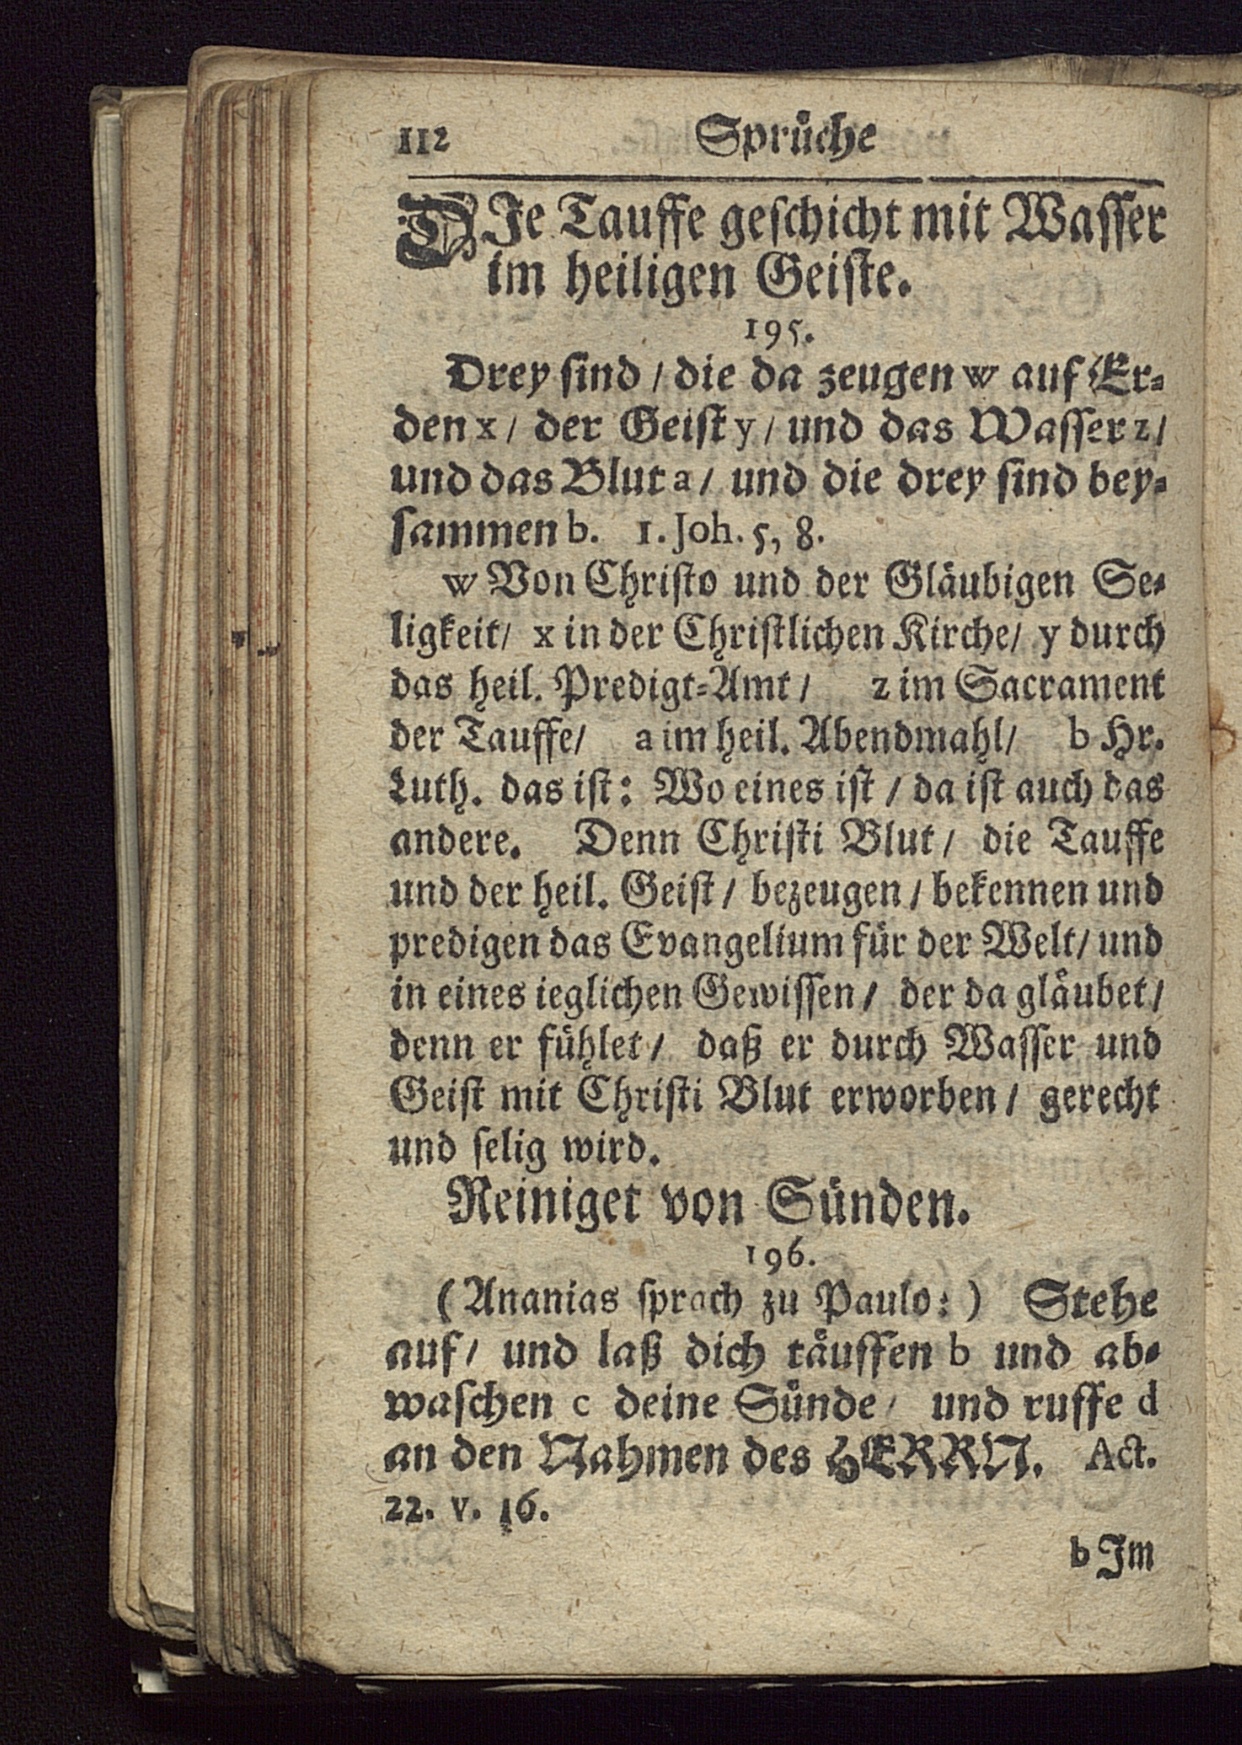 112 Sprüche
DJe Tauffe geschicht mit Wasser
im heiligen Geiste.
195.
Drey sind / die da zeugen w auf Er-
den x / der Geist y / und das Wasser z /
und das Blut a / und die drey sind bey-
sammen b. 1. Joh. 5, 8.
w Von Christo und der Gläubigen Se-
ligkeit / x in der Christlichen Kirche / y durch
das heil. Predigt-Amt / z im Sacrament
der Tauffe / a im heil. Abendmahl / b Hr.
Luth. das ist: Wo eines ist / da ist auch das
andere. Denn Christi Blut / die Tauffe
und der heil. Geist / bezeugen / bekennen und
predigen das Evangelium für der Welt / und
in eines ieglichen Gewissen / der da gläubet /
denn er fühlet / daß er durch Wasser und
Geist mit Christi Blut erworben / gerecht
und selig wird.
Reiniget von Sünden.
196.
(Ananias sprach zu Paulo:) Stehe
auf / und laß dich täuffen b und ab-
waschen c deine Sünde / und ruffe d
an den Nahmen des HERRN. Act.
22. v. 16.
b Jm